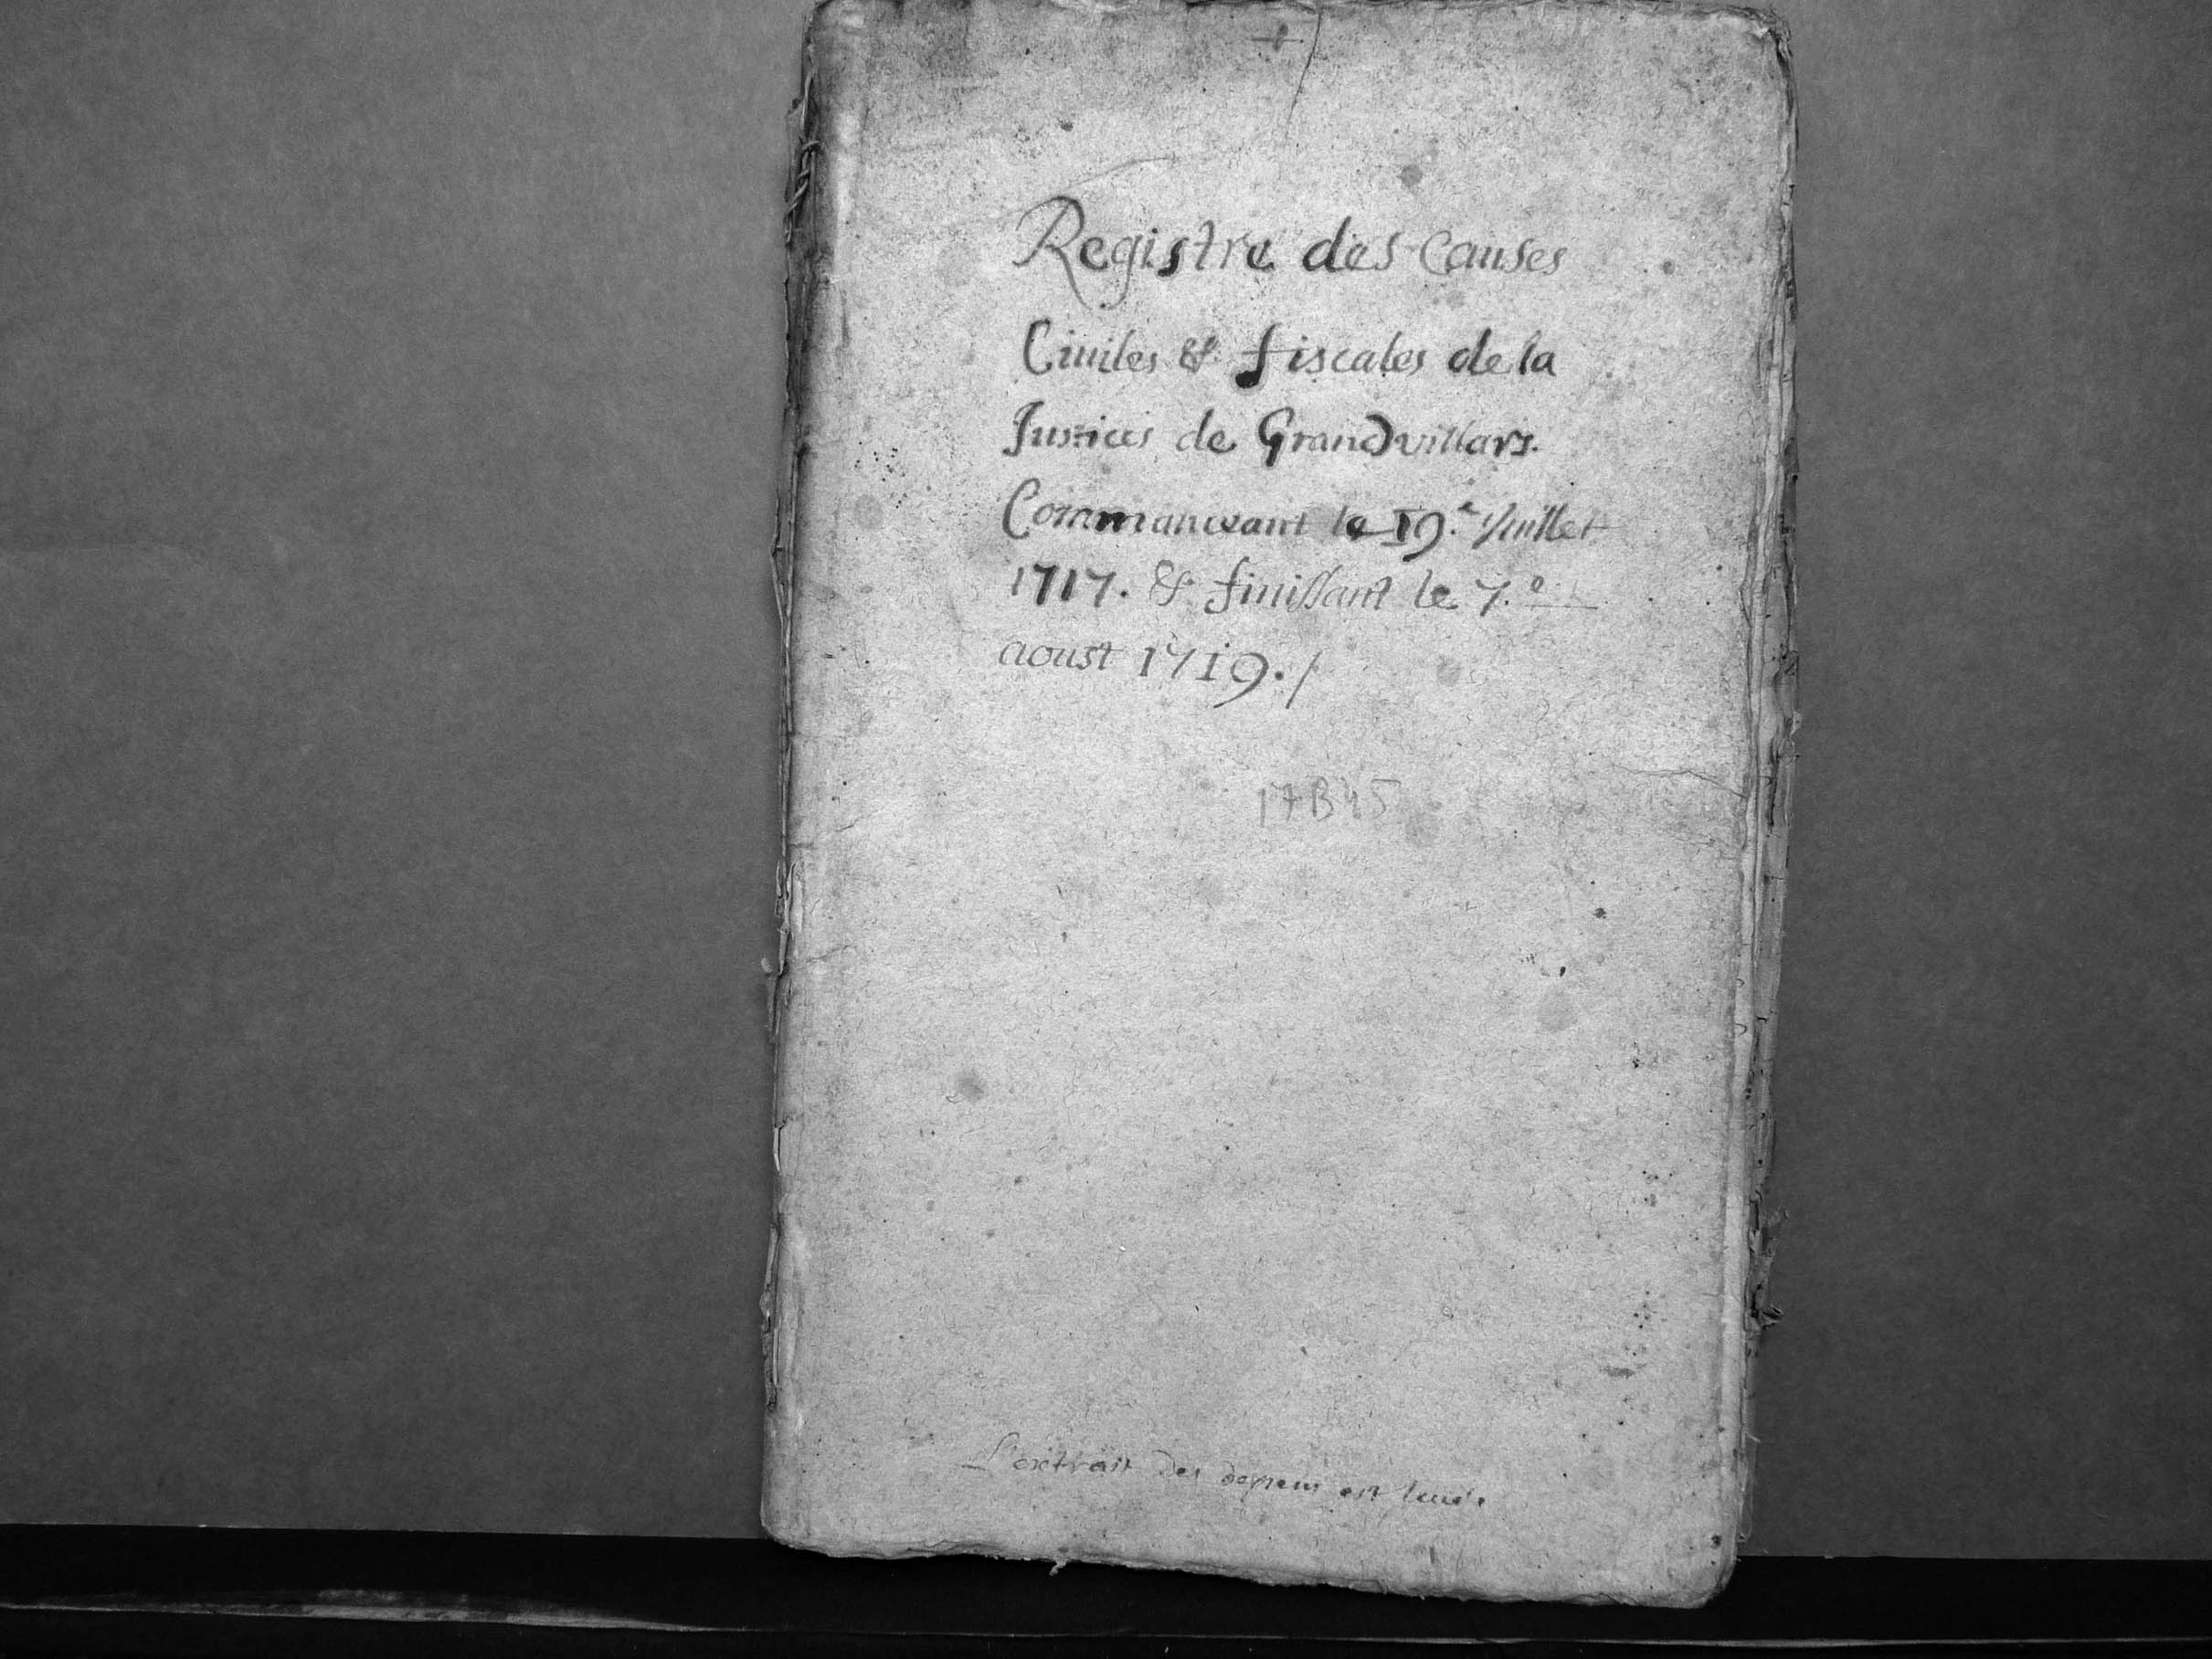 Registre des Causes
Ciuiles & fiscales de la
Justices de Grandvillars.
Commanceant le 19.e Juillet
1717. & finissant le 7.e
aoust 1719./
17B45
L'extrait des depens est leué.